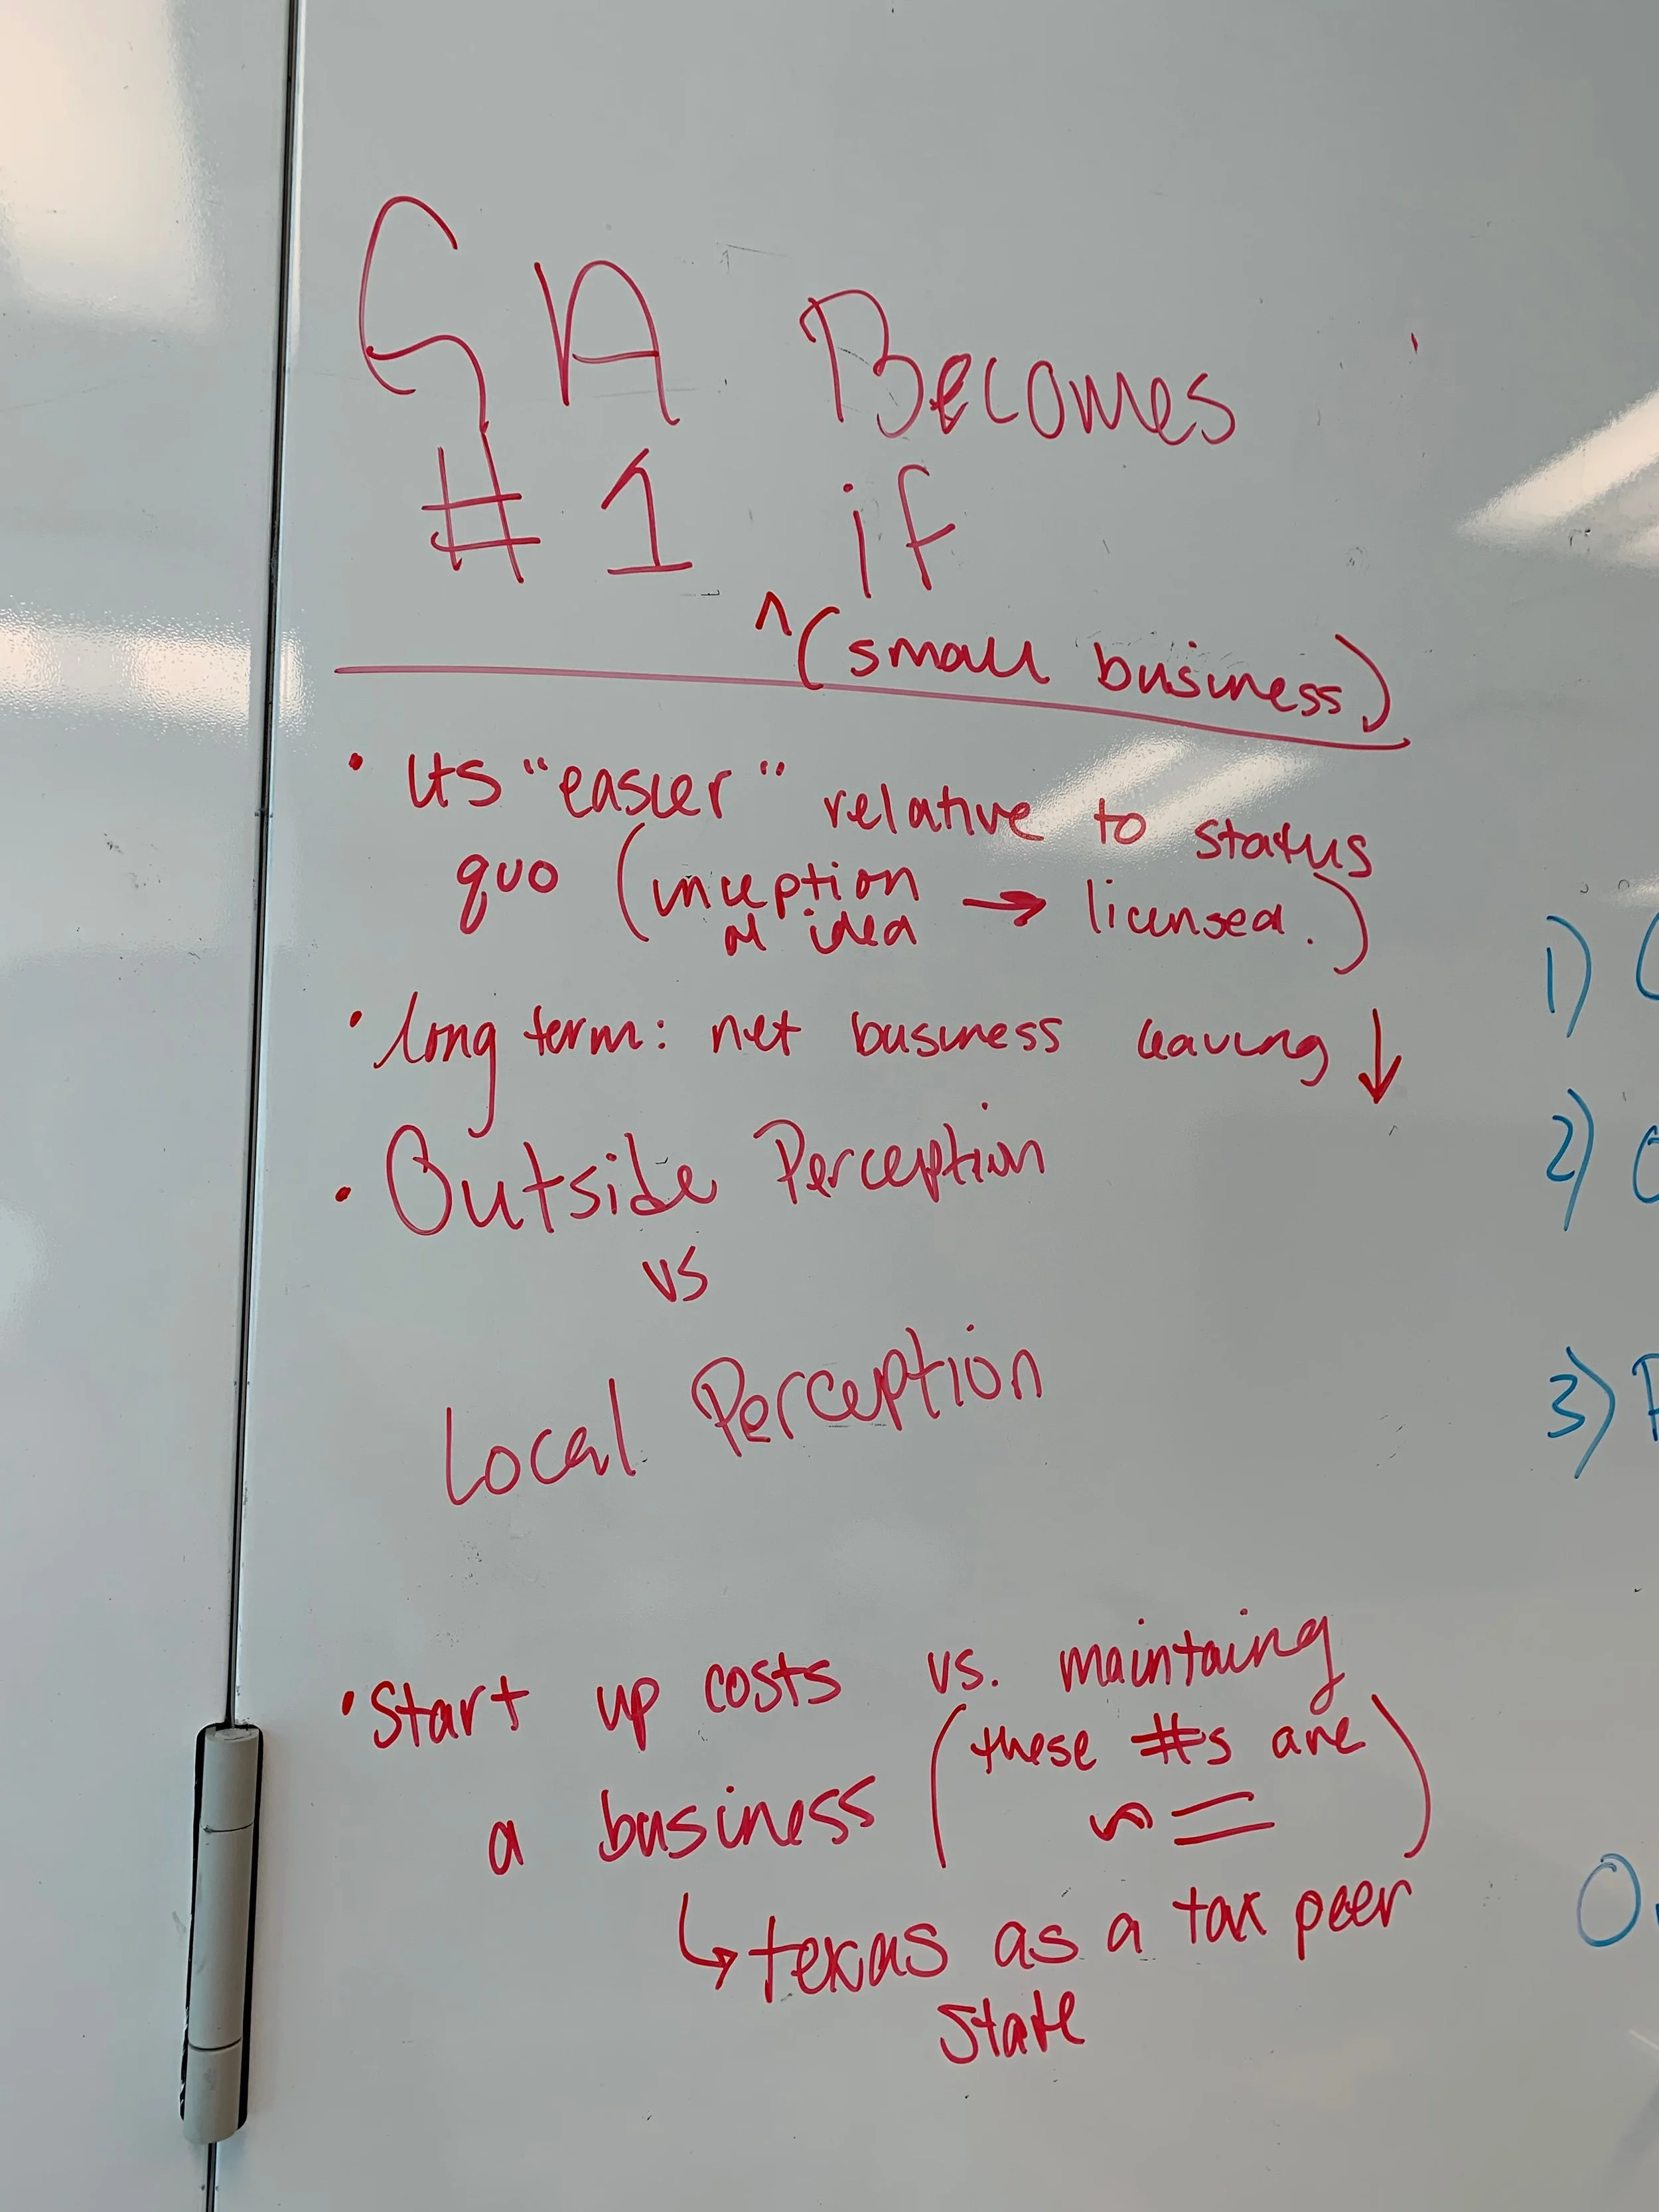 GA Becomes
#1 if
^ (small business)
• its "easier" relative to status
quo (inception → licensed.)
of idea
• long term: net business leaving ↓
• Outside Perception
vs
Local Perception
• Start up costs vs. maintaing
a business (these #s are
=)
↳ texas as a tax peer
state
1)
2)
3)